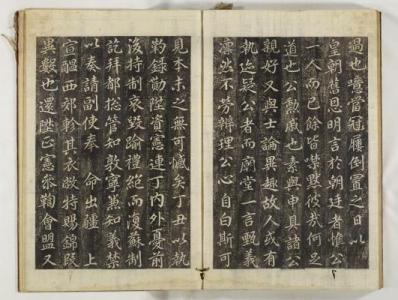 過也噫當冠屨倒置之日以
皇朝舊恩明言於朝廷者惟公
一人而已餘皆
道也公勲戚也素與申具諸公
親好又與士論異趣故人或有
執迹疑公者而廟堂一言甄義
凛然不勞辨理公心自白斯可
見本末之無可憾矣丁丑以執
勑錄勛陞資憲連丁內外憂前
後持制哀毁踰禮絶而復蘇制
訖拜都捴管知敦寧兼知義禁
以奏請副使奉 命出疆 上
宣醞西郊 其衣 特賜錦段
異數也還陞正憲叅鞫會盟又